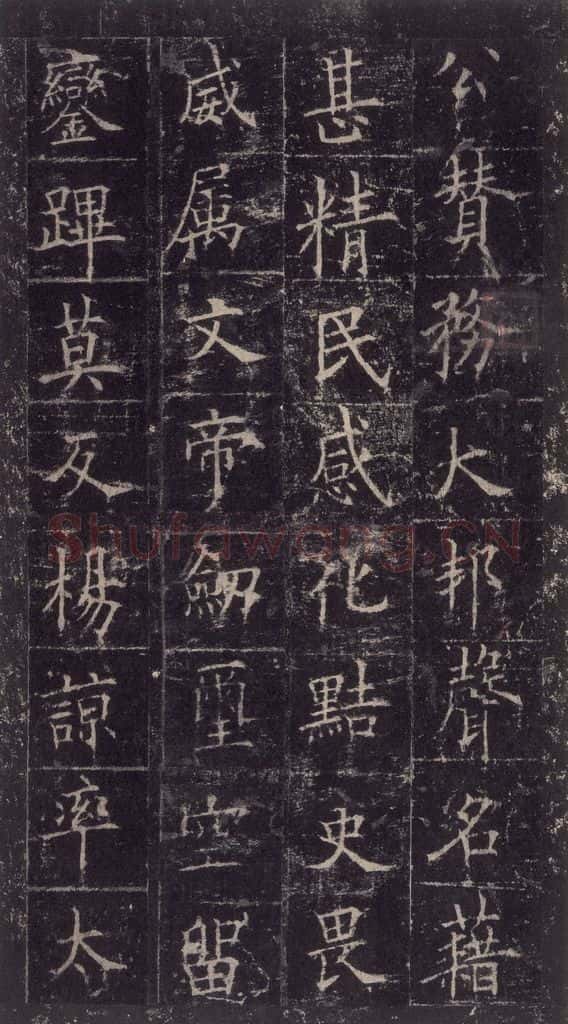 公賛務大邦聲名藉
甚精民感化黠吏畏
威属文帝劒璽空留
鑾蹕莫反楊諒率太
Shufawang.CN